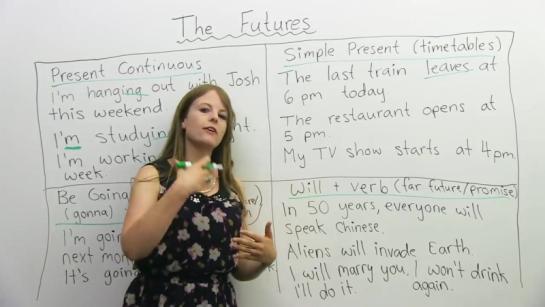 The Futures
Present Continuous
I'm hanging out with Josh
this weekend
I'm studyin
I'm workin
week.
Simple Present (timetables)
The last train leaves at
6 pm today
The restaurant opens at
5 pm.
My TV show starts at 4pm.
Be Going
(gonna)
I'm goin
next mon
It's goin
Will + verb (far future/promise)
In 50 years, everyone will
speak Chinese.
Aliens will invade Earth.
I will marry you. I won't drink
I'll do it. again.